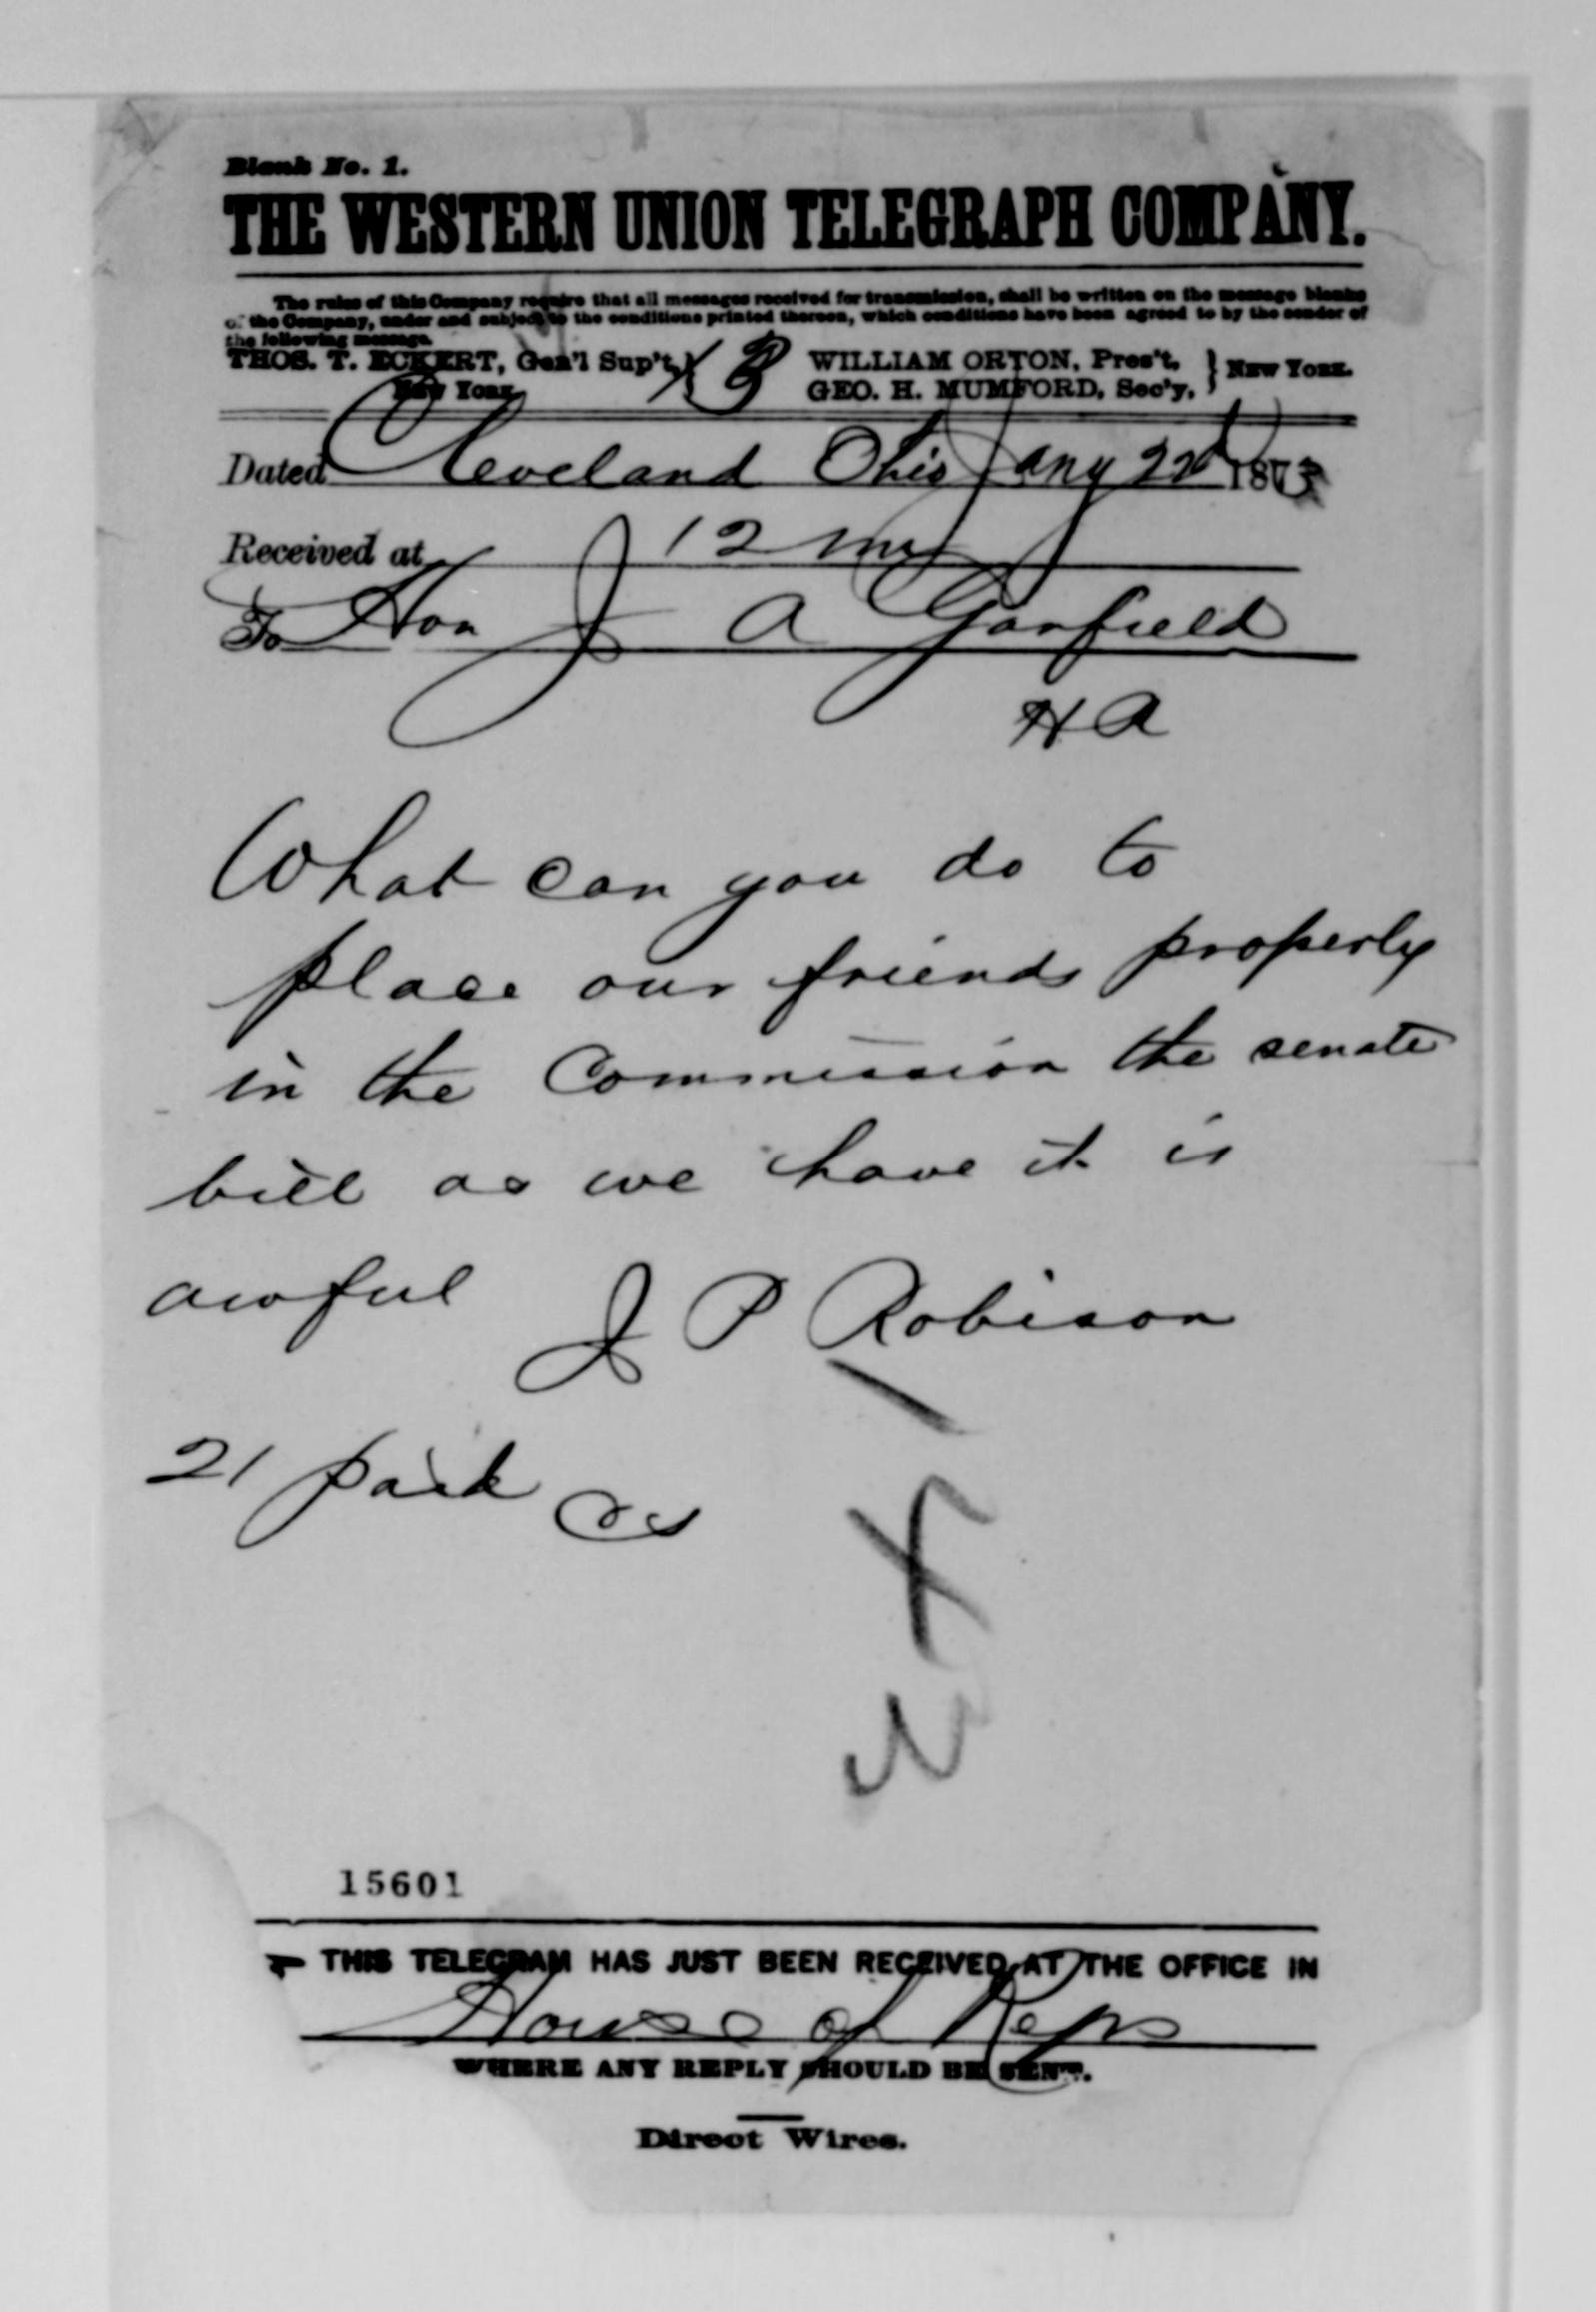 Blank No. 1.
THE WESTERN UNION TELEGRAPH COMPANY.
The rules of this Company require that all messages received for transmission, shall be written on the message blanks
of the Company, under and subject to the conditions printed thereon, which conditions have been agreed to by the sender of
the following message.
THOS. T. ECKERT, Gen'l Sup't, WILLIAM ORTON, Pres't, } NEW YORK.
New York GEO. H. MUMFORD, Sec'y,
Dated Cleveland Ohio Jany 22d 1873
Received at 12 m
To Hon J A Garfield
H A
What can you do to
place our friends properly
in the Commission the senate
bill as we have it is
awful J P Robison
21 paid
15601
THIS TELEGRAM HAS JUST BEEN RECEIVED AT THE OFFICE IN
House of Reps
WHERE ANY REPLY SHOULD BE SENT.
Direct Wires.